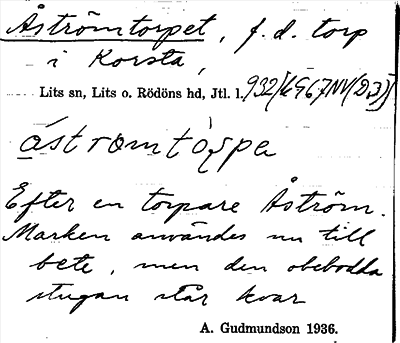 Åströmtorpet, f.d. torp
i Korsta,
Lits sn, Lits o. Rödöns hd, Jtl. l.
åstromtɔ̀ʂpa
Efter en torpare Åström.
Marken användes nu till
bete, men den obebodda
stugan står kvar
A. Gudmundson 1936.